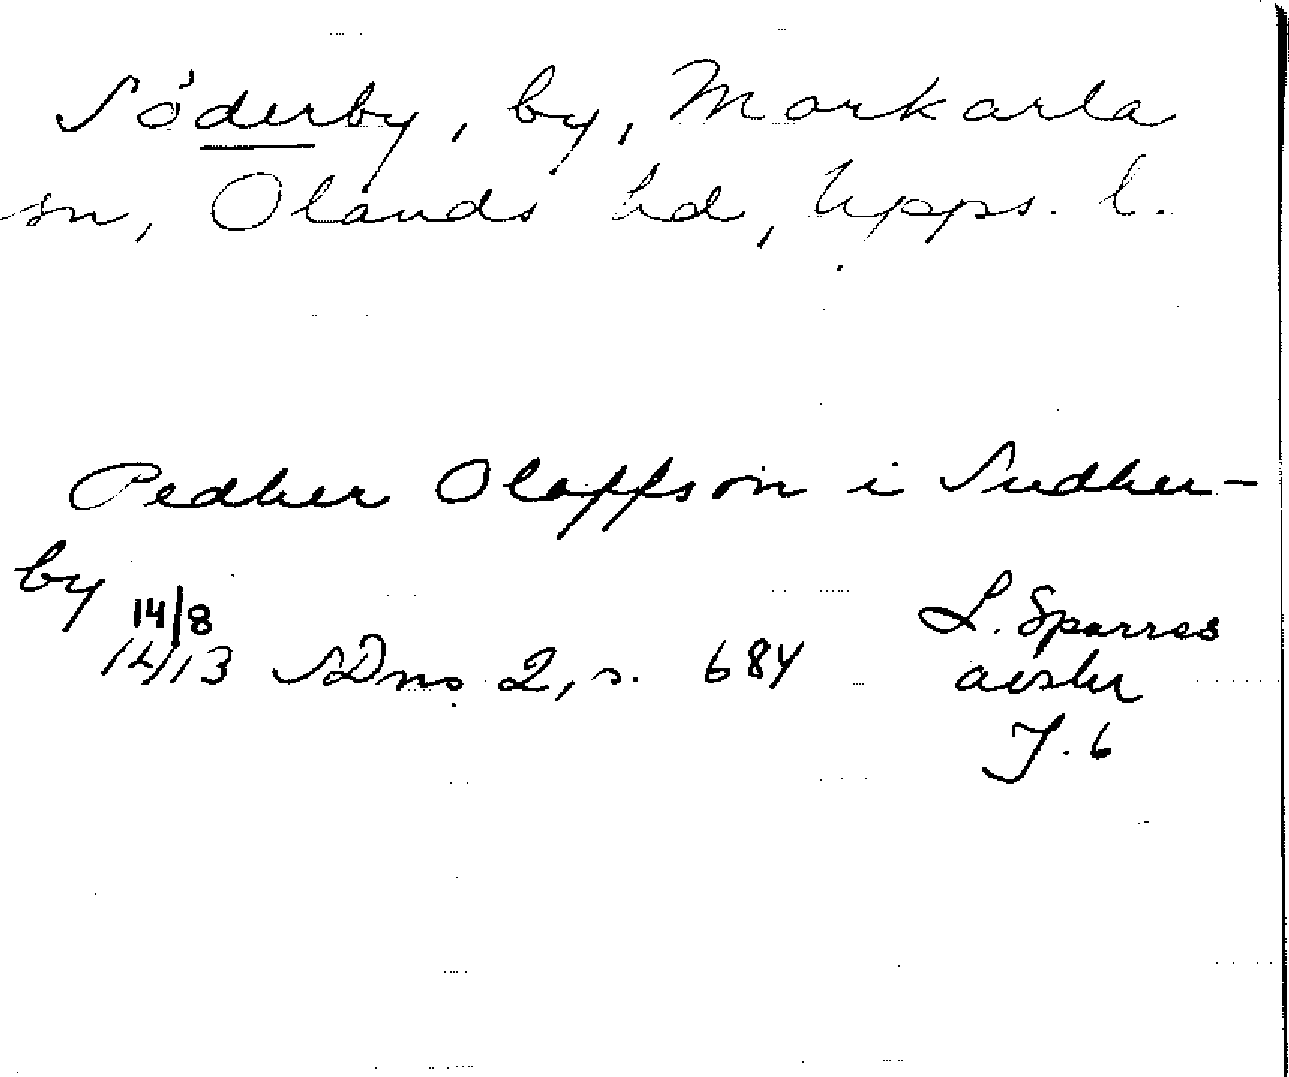 Söderby, by, Morkarla
sn, Olands hd, Upps. l.
Pedher Olaffson i Sudher-
by
14/8
1413 SDns 2, s. 684
L. Sparres
avskr
T. 6